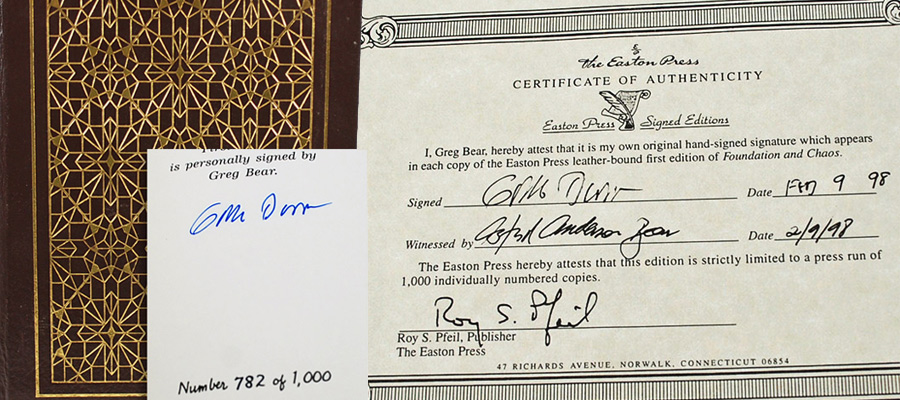 is personally signed by
Greg Bear.
Number 782 of 1,000
the Easton Press
CERTIFICATE OF AUTHENTICITY
Easton Press Signed Editions
I, Greg Bear, hereby attest that it is my own original hand-signed signature which appears
in each copy of the Easton Press leather-bound first edition of Foundation and Chaos.
Signed Date Feb 9 98
Witnessed by Astrid Anderson Bear Date 2/9/98
The Easton Press hereby attests that this edition is strictly limited to a press run of
1,000 individually numbered copies.
Roy S. Pfeil
Roy S. Pfeil, Publisher
The Easton Press
47 RICHARDS AVENUE, NORWALK, CONNECTICUT 06854